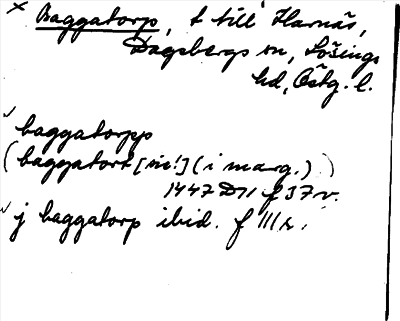 × Baggatorp, t till Harnäs,
Dagsbergs sn, Lösings
hd, Östg. l.
baggatorpp
(baggatort [sic!] (i marg.))
1447 D11 f 37 v.
j baggatorp ibid. f 111 r.